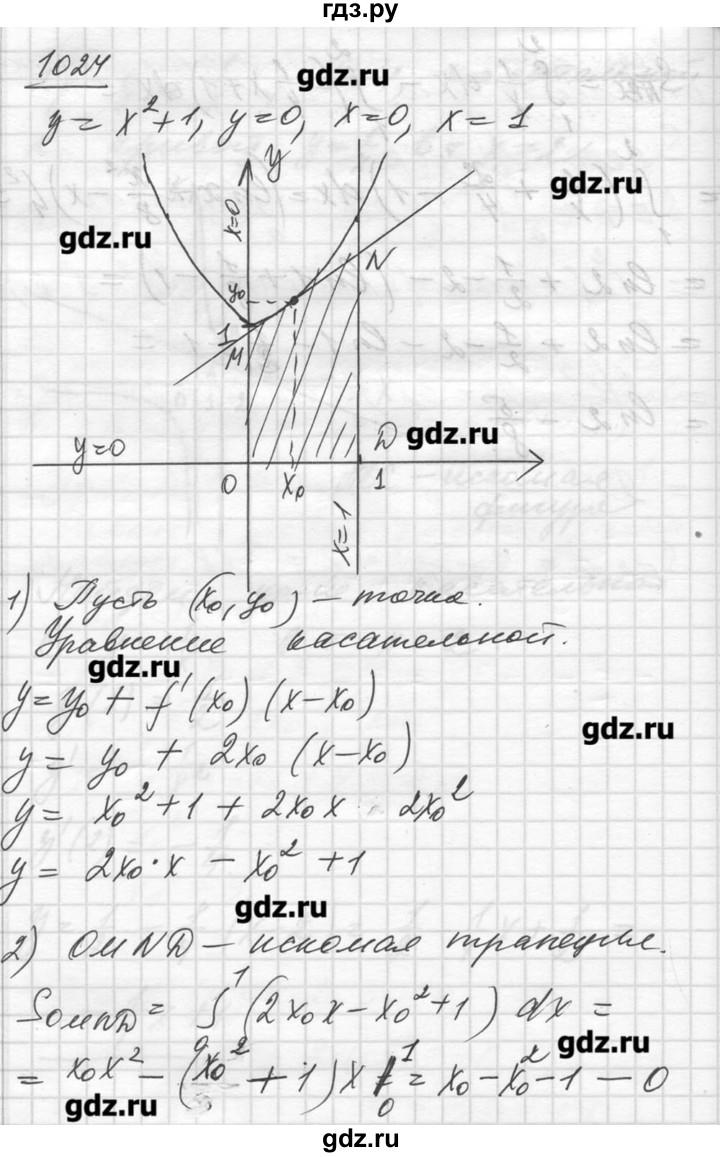 гдз.ру
1024
gdz.ru
y = x² + 1, y = 0, x = 0, x = 1
y
gdz.ru
x=0
gdz.ru
N
y₀
1
M
D
gdz.ru
y=0
0
x₀
1
x=1
1) Пусть (x₀, y₀) – точка.
Уравнение касательной.
gdz.ru
y = y₀ + f'(x₀) (x-x₀)
gdz.ru
y = y₀ + 2x₀ (x-x₀)
y = x₀² + 1 + 2x₀x 2x₀²
y = 2x₀·x – x₀² + 1
gdz.ru
2) OMND – искомая трапеция.
S_OMND = ∫₀¹ (2x₀x – x₀² + 1) dx =
gdz.ru
= x₀x² – (x₀² + 1) x |₀¹ = x₀ – x₀² – 1 – 0
gdz.ru
gdz.ru